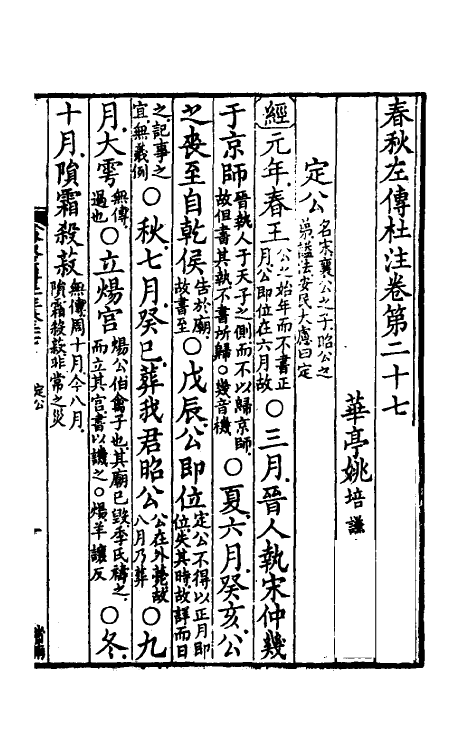 春秋左傳杜注卷第二十七
華亭姚培謙
定公名宋襄公之子昭公之弟諡法安民大慮曰定
經元年春王公之始年而不書正月公即位在六月故○三月晉人執宋仲幾
于京師晉執人于天子之側而不以歸京師故但書其執不書所歸○幾音機○夏六月癸亥公
之喪至自乾侯告於廟故書至○戊辰公即位定公不得以正月即位失其時故詳而日
之記事之宜無義例○秋七月癸巳葬我君昭公公在外薨故八月乃葬○九
月大雩無傳過也○立煬宮煬公伯禽子也其廟已毀季氏禱之而立其宮書以譏之○煬羊讓反○冬
十月隕霜殺菽無傳周十月今八月隕霜殺菽非常之災
定公
一